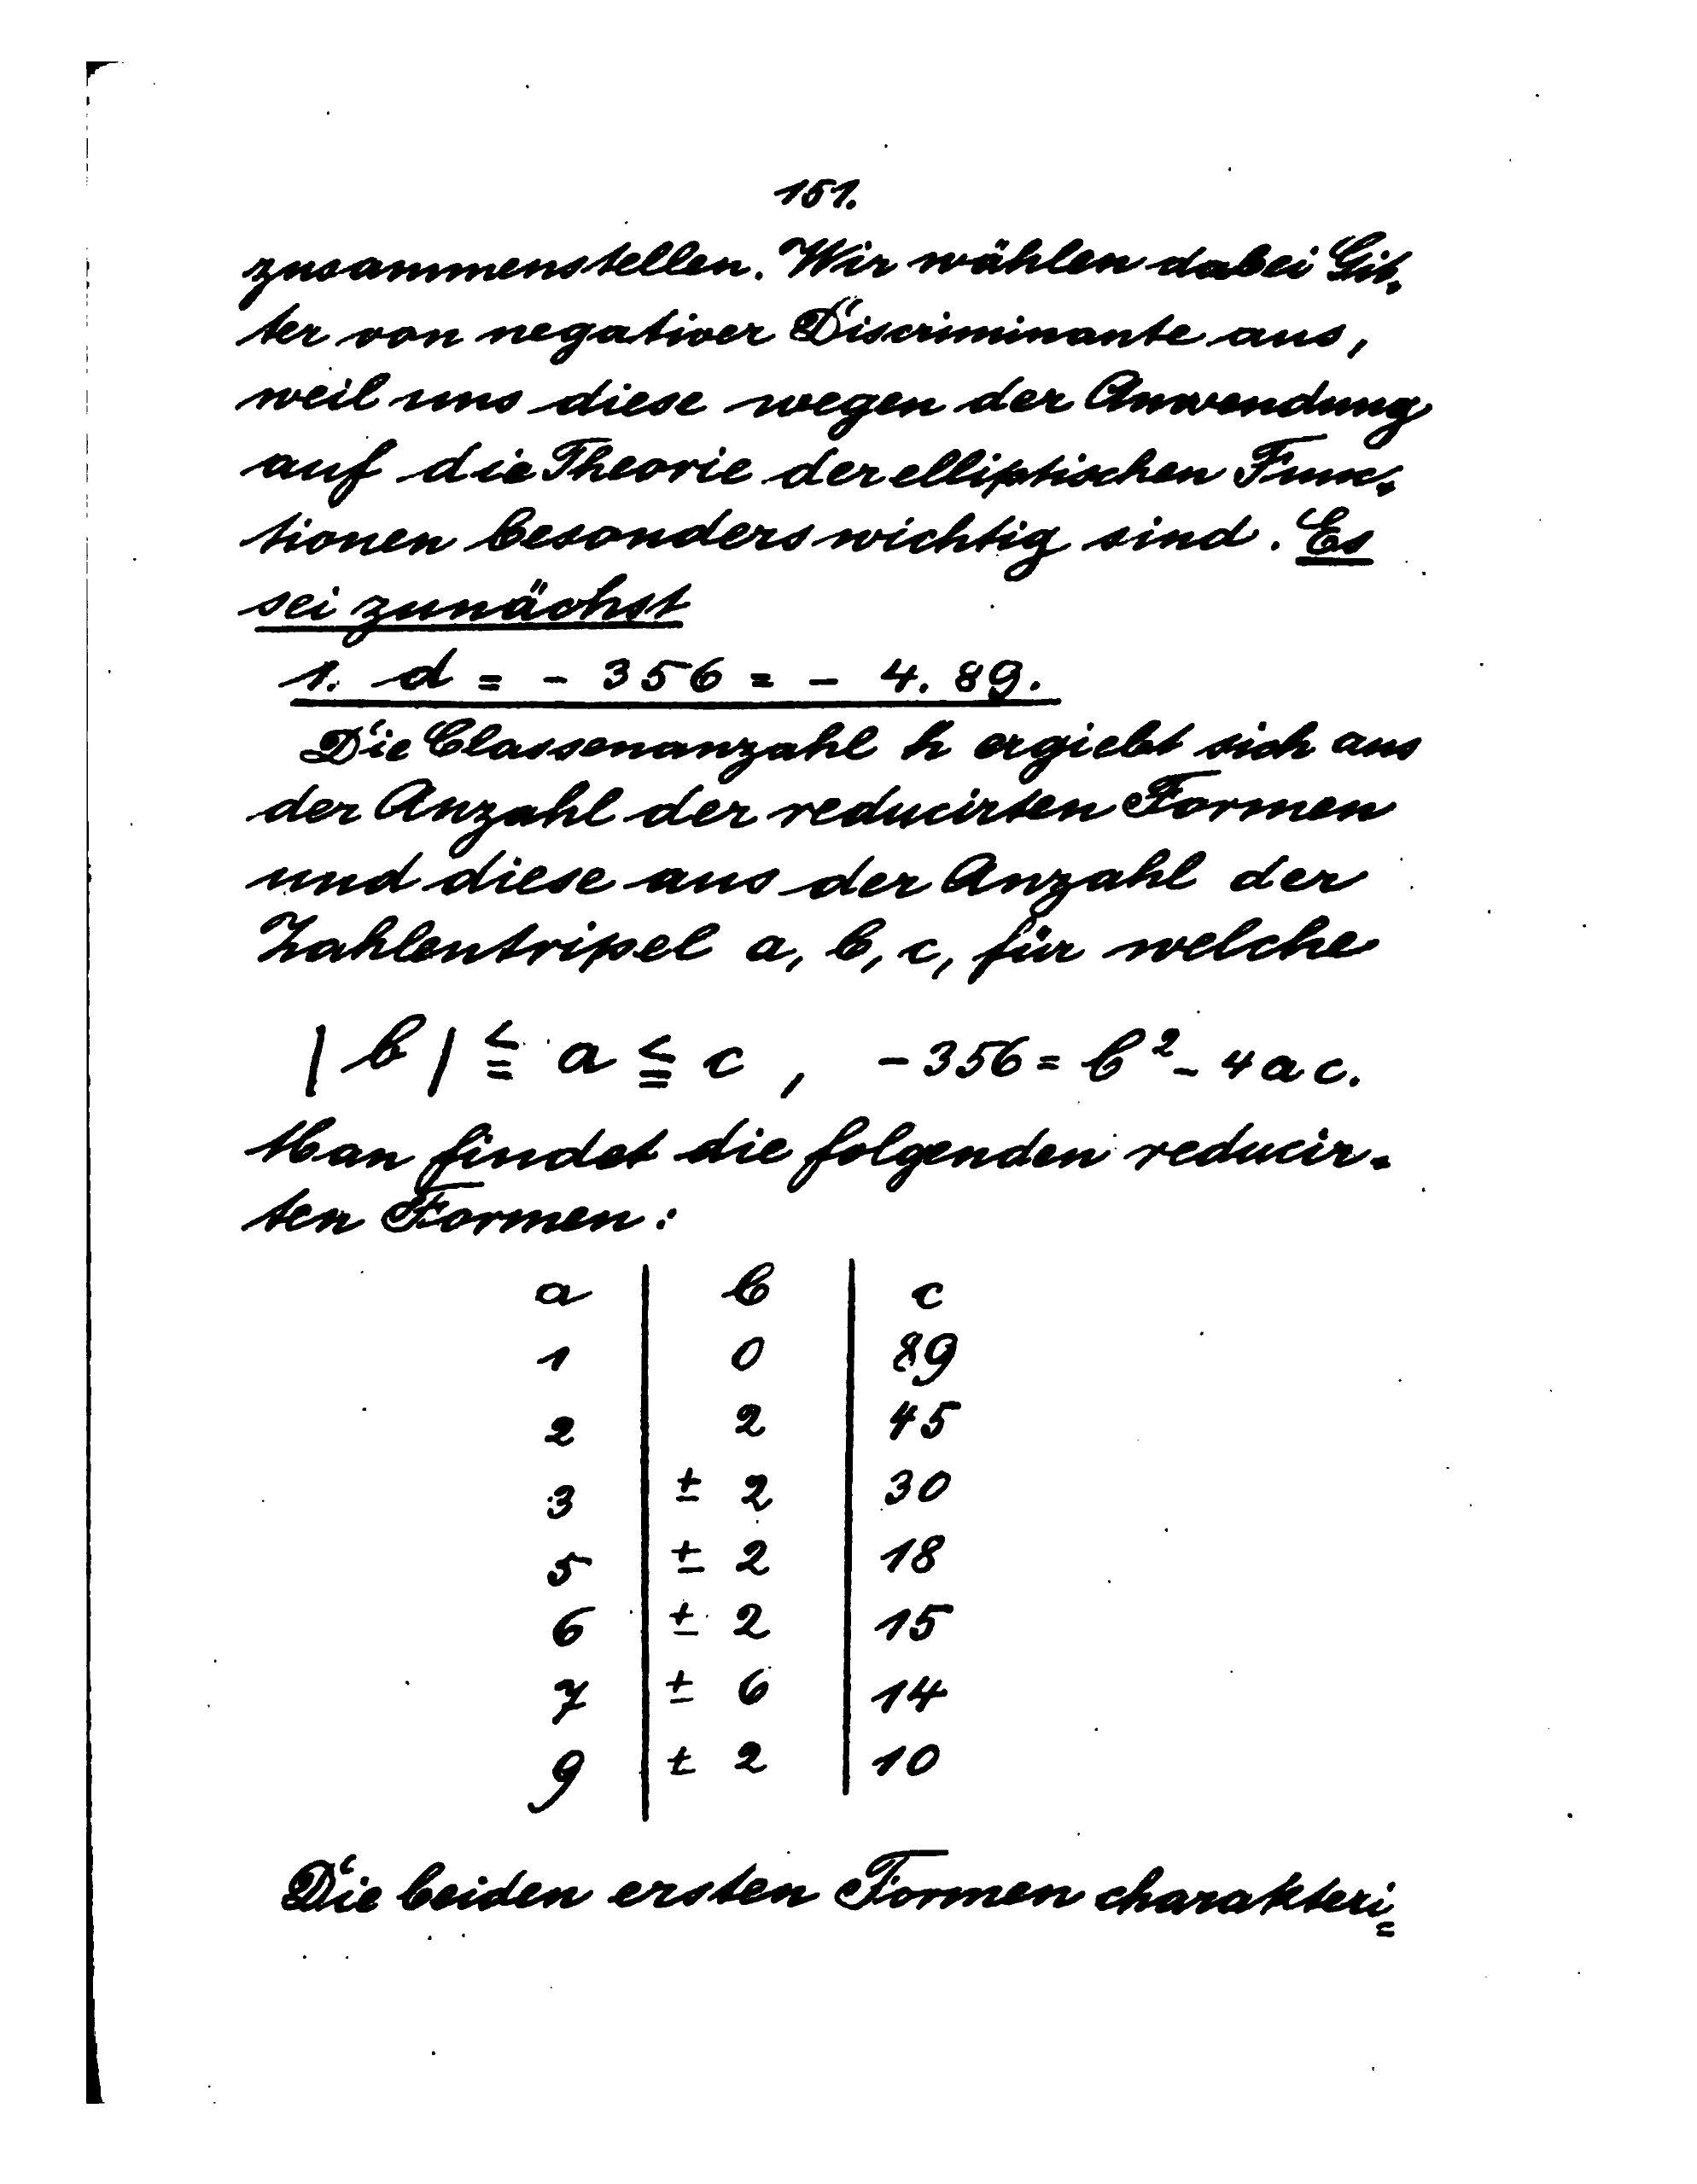 151.
zusammenstellen. Wir wählen dabei Git-
ter von negativer Discriminante aus,
weil uns diese wegen der Anwendung
auf die Theorie der elliptischen Func-
tionen besonders wichtig sind. Es
sei zunächst
1. d = - 356 = - 4. 89.
Die Classenanzahl h ergiebt sich aus
der Anzahl der reducirten Formen
und diese aus der Anzahl der
Zahlentripel a, b, c, für welche
|b| ≦ a ≦ c, -356 = b² - 4ac.
Man findet die folgenden reducir-
ten Formen:
a | b | c
1 | 0 | 89
2 | 2 | 45
3 | ± 2 | 30
5 | ± 2 | 18
6 | ± 2 | 15
7 | ± 6 | 14
9 | ± 2 | 10
Die beiden ersten Formen charakteri=